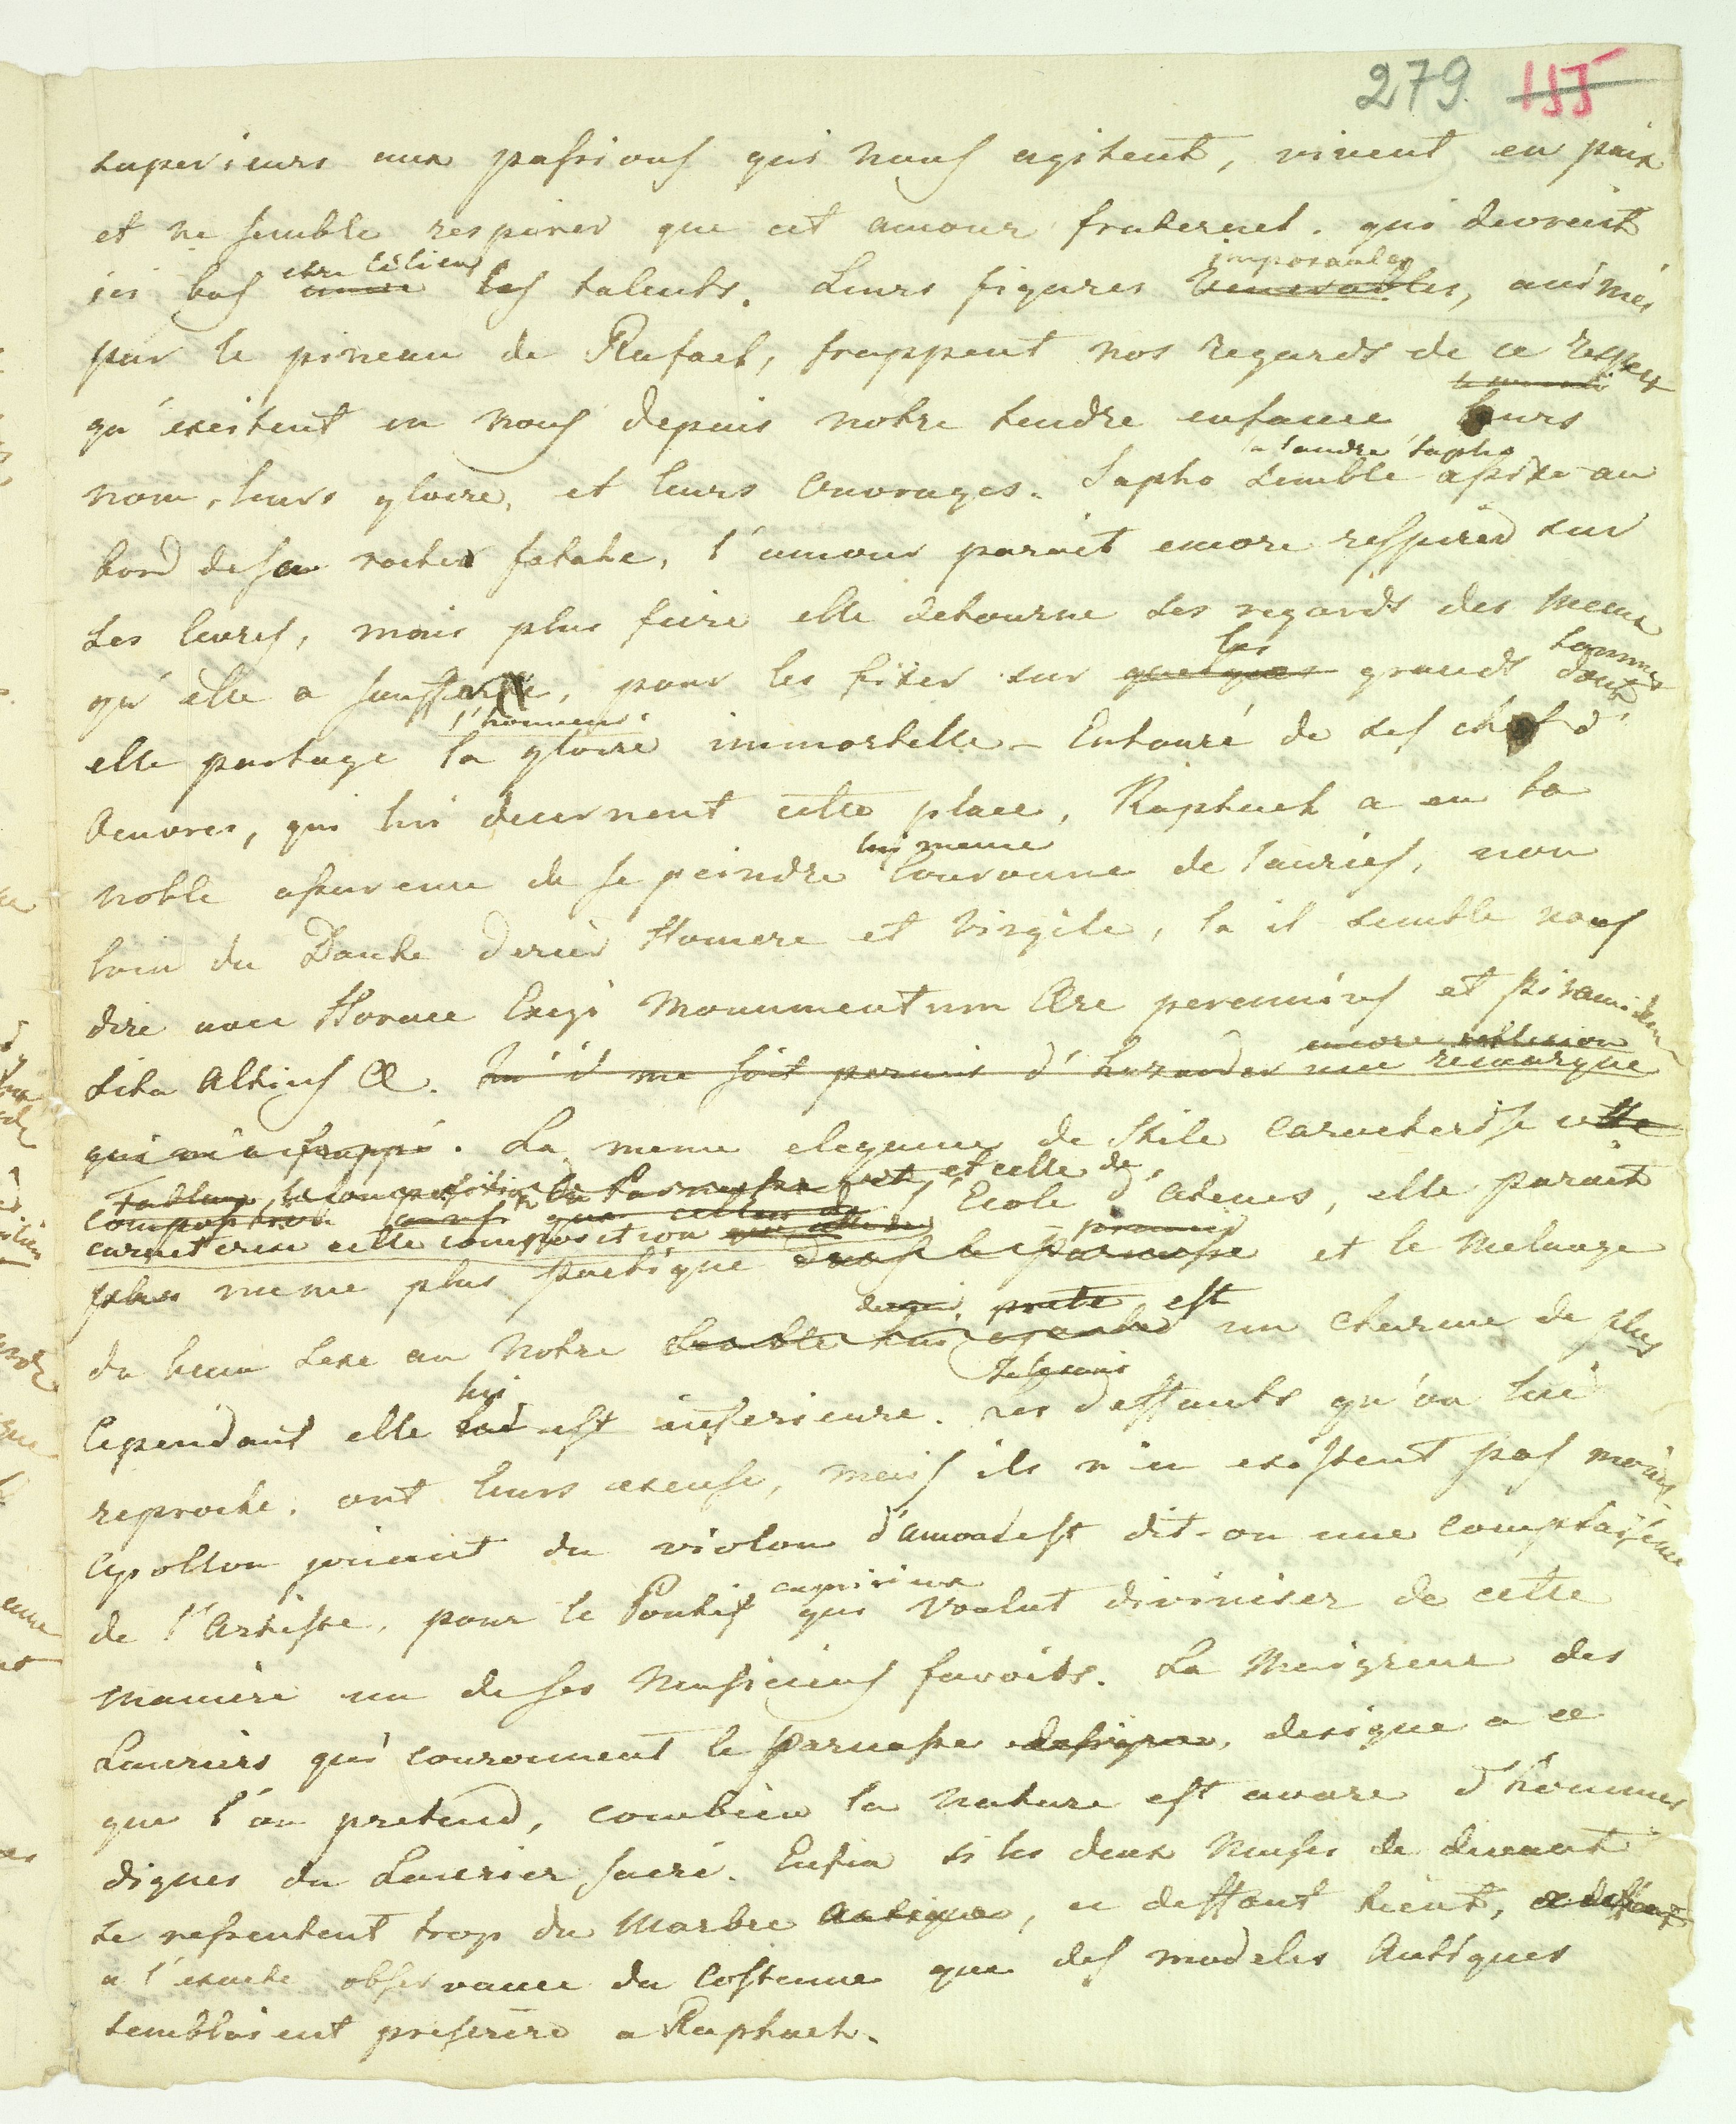 279. 155
superieurs aux passions qui nous agitent, vivent en paix
et ne semble respirer que cet amour fraternel. qui devroit
imposantes
ici bas les talents. Leurs figures venerables, animés
par le pinceau de Rafael, frappent nos regards de ce respect
qu'exitent en nous depuis notre tendre enfance leurs
la tendre Sapho
nom, leurs gloire, et leurs ouvrages. Sapho semble assise au
bord de son rocher fatale, l'amour parait encore respirer sur
ses levres, mais plus fiere elle detourne ses regards des meaux
les hommes
qu'elle a soufferte, pour les fixer sur quelques grands dont
l'honneur
elle partage la gloire immortelle – Entouré de ses chef d'
Oeuvres, qui lui decernent cette place, Raphael a eu la
lui meme
noble assurence de se peindre Couronne de lauriers, non
loin du Dante derier Homere et Virgile, la il semble nous
dire avec Horace Exegi Monumentum Ære perennius et piramidum
encore reflexion
situ Altius &. qu'il me soit permis d'hazarder une remarque
qui m'a frappé. La meme elegance de Stile caracterise cette
Tableau, la composition du Parnasse et et celle de
composition ainsi que celle de l'Ecole d'Atenes, elle parait
caracterise cette composition que celle du premier
plus meme plus poetique dans le Parnasse et le melange
est
du beau sexe au notre semble lui un charme de plus
lui
Cependant elle lui est inferieure. Les deffauts qu'on lui
reproche. ont leurs excuse, mais ils n'en existent pas moins.
Apollon jouant du violon d'amour est dit-on une complaisence
capricieux
de l'Artiste, pour le Pontif qui voulut diviniser de cette
maniere un de ses Musiciens favoits. La Maigreur des
Lauriers qui couronnent le Parnasse designe, designe a ce
que l'on pretend, combien la nature est avare d'hommes
dignes du Laurier sacré. Enfin si les deux Muses de devant
se resentent trop du Marbre Antique, ce deffaut tient, ce deffaut
a l'exacte observance du Costume que des modeles Antiques
semblaient prescrire a Raphael.